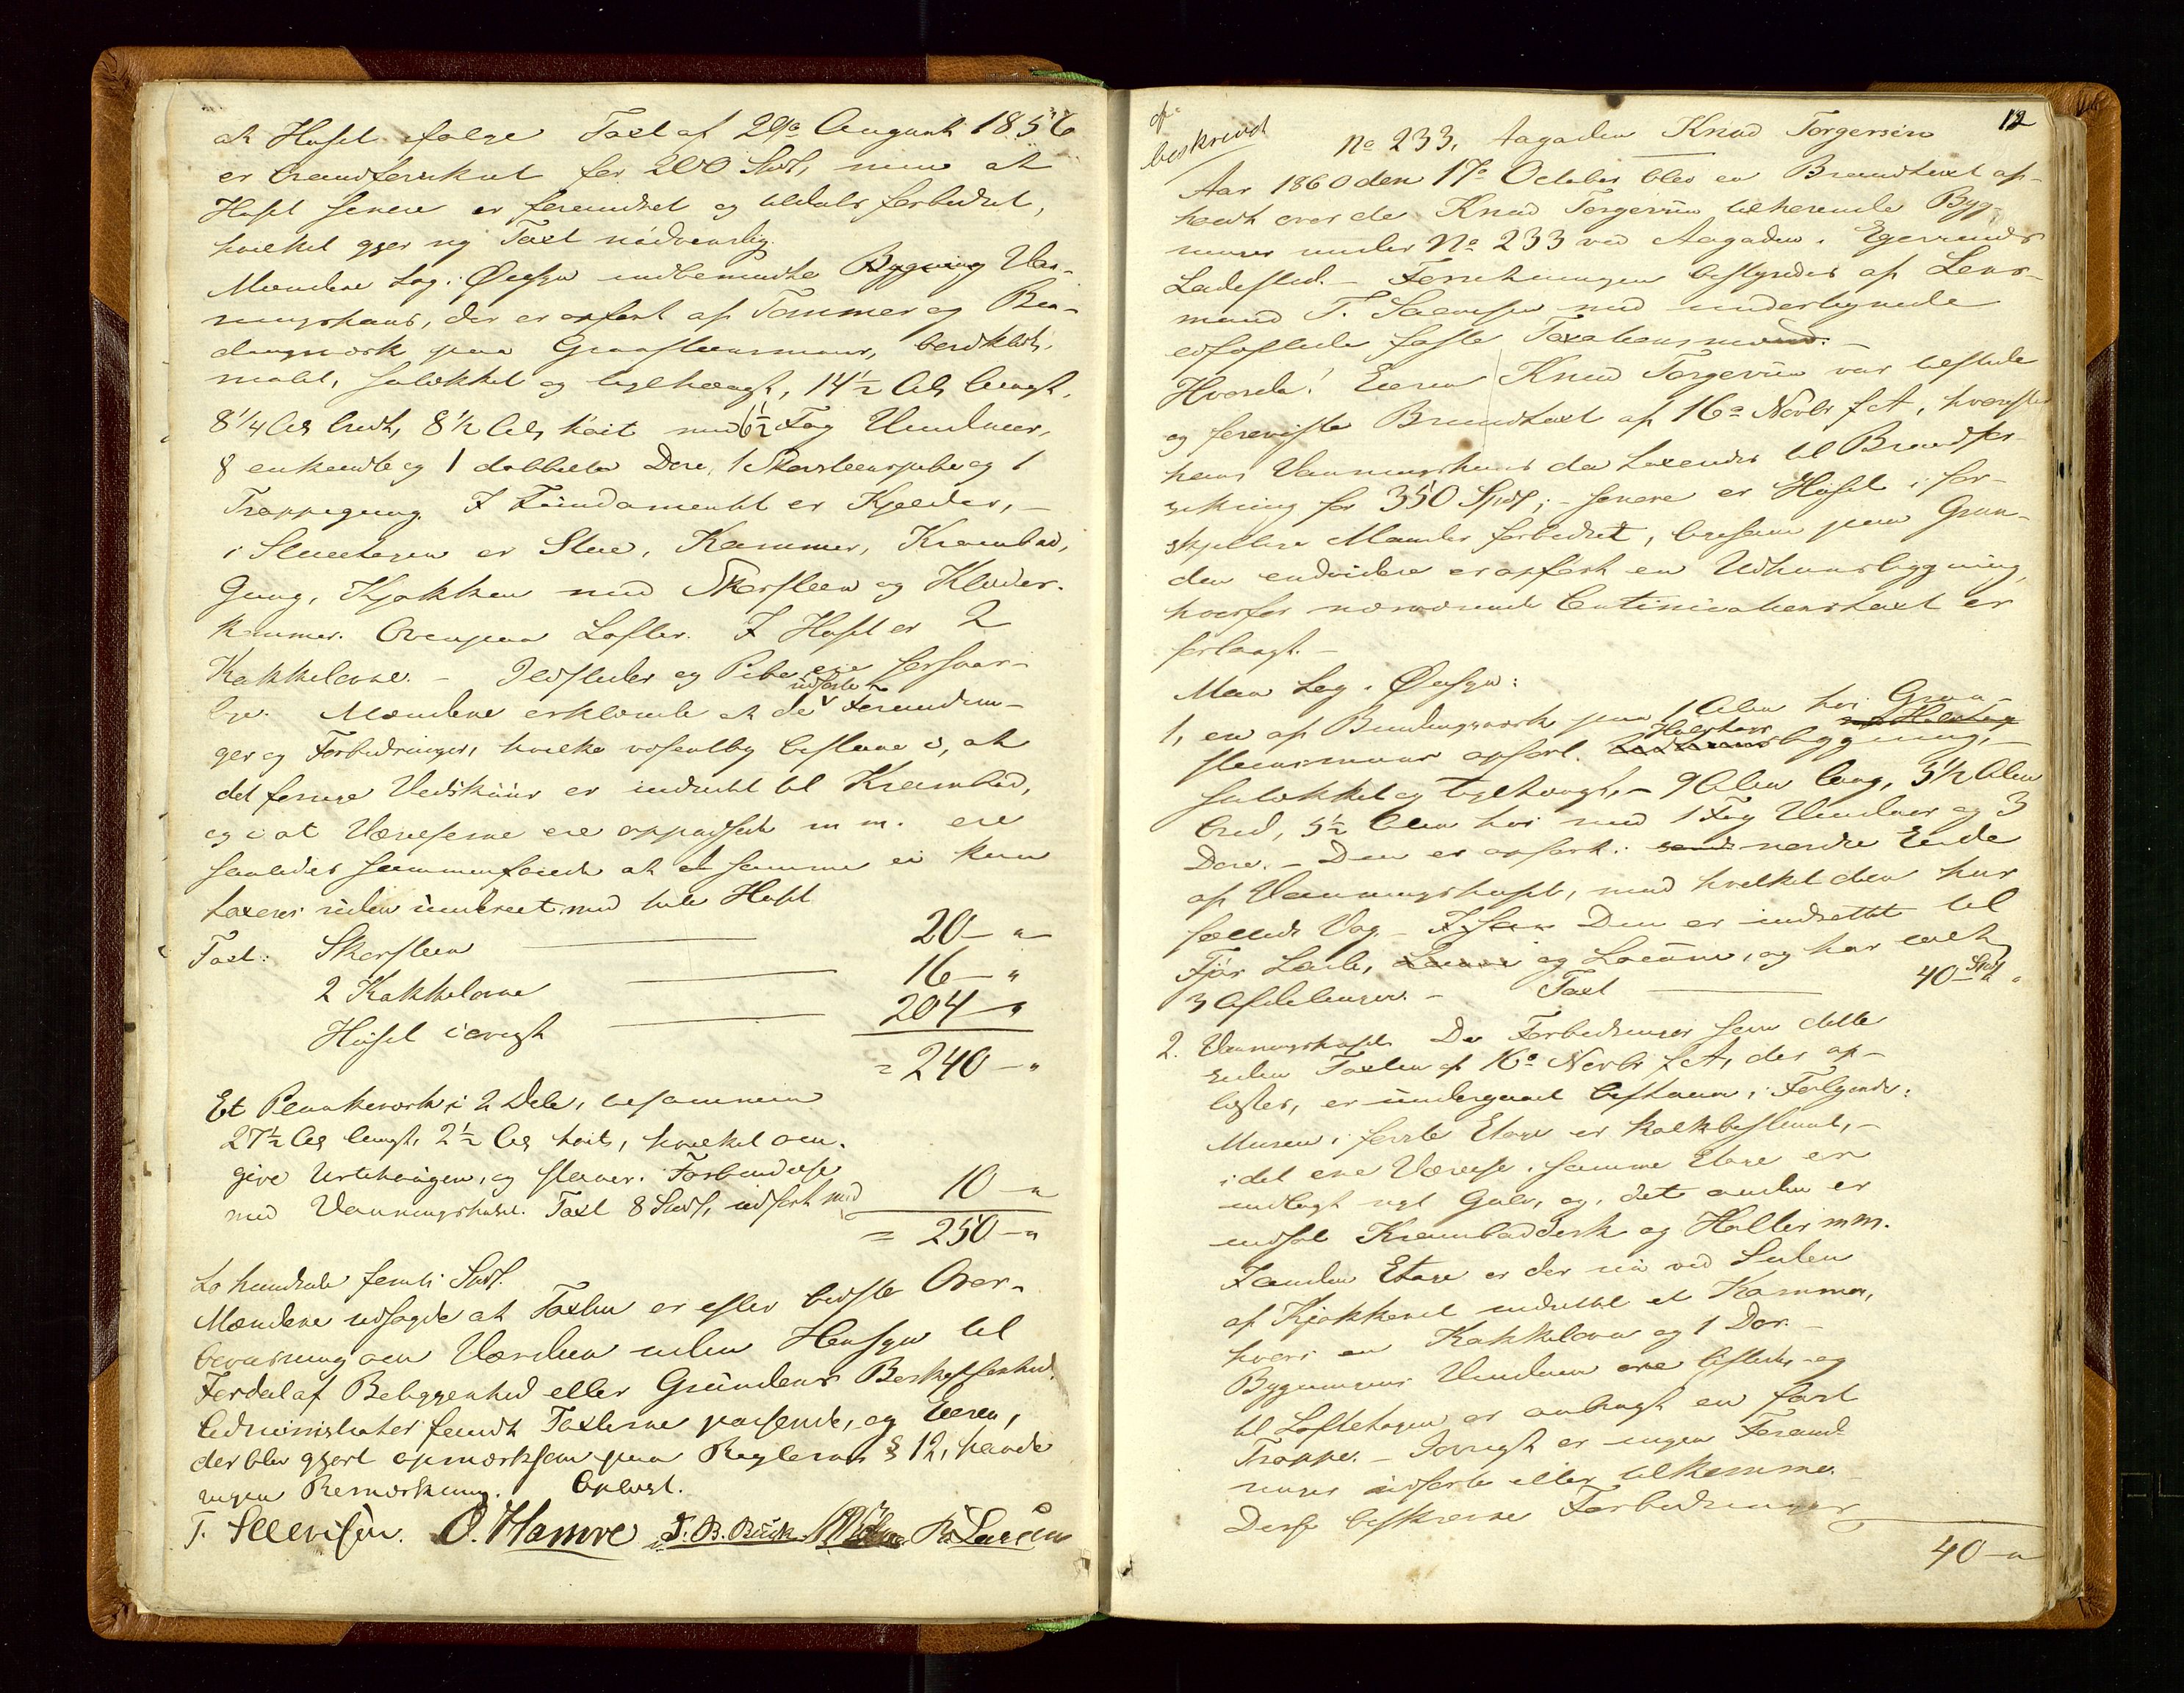 at Huset ifølge Taxt af 29de August 1856
er brandforsikret for 200 Spd, men at
Huset senere er forandret og tildels forbedret,
hvilket gjør ny Taxt nødvendig.
Mændene tog i Øiesyn indbemeldte Bygning Vaa-
ningshuus, der er opført af Tømmer og Bin-
dingsværk paa Graasteensmuur, bordklædt,
malet, sutækket og teglhængt, 14 1/2 Al langt,
8 1/4 Al bredt, 8 1/2 Al høit med 6 1/2 Fag Vinduer,
8 enkeodte og 1 dobbelte Døre, 1 Skorsteenspibe og 1
Trappegang. I Fundamentet er Kjelder, –
i Stueetagen er Stue, Kammer, Krambod,
Gang, Kjøkken med Skorsteen og Klæde-
kammer. Ovenpaa Lofter. I Huset er 2
Kakkelovne. – Ildsteder og Pibe ere forsvar-
lige. Mændene erklærede at de udførte Forandrin-
ger og Forbedringer, hvilke væsentlig bestaae i, at
det forrige Vedskuur er indrettet til Krambod,
og i at Værelserne ere oppudsede m. m. ere
saaledes sammenføiede at et samme ei kan
taxeres uden iberegnet med hele Huset
Taxt: Skorsteen 20 – "
2 Kakkelovne 16 – "
Huset iøvrigt 204 – "
= 240 – "
Et Plankeværk i 2 Dele, tilsammen
27 1/2 Al langt, 2 1/2 Al høit, hvilket om-
give Urtehaugen, og staaer i Forbindelse
med Vaaningshuset. Taxt 8 Spd, udført med 10 – "
= 250 – "
to hundrede femti Spd.
Mændene udsagde at Taxten er efter bedste Over-
beviisning om Værdien uden Hensyn til
Fordel af Beliggenhed eller Grundens Beskaffenhed.
Administrator fandt Taxterne passende, og Eieren,
der blev gjort opmærksom paa Reglerne § 12, havde
ingen Bemærkning. Oplæst.
T. Salvesen. O. Hamre J. B. Buch R. Larsen
12
beskrevet
No 233, Aagaden Knud Torgersen
Aar 1860 den 17de October blev en Brandtaxt af-
holdt over de Knud Torgersen tilhørende Byg-
ninger under No 233 ved Aagaden i Egersunds
Ladested. – Forretningen bestyredes af Lens-
mand T. Salvesen med undertegnede
edfæstede faste Taxationsmænd. –
Hvorda! Eieren Knud Torgersen var tilstede
og foreviiste Brandtaxt af 16de Novbr f. A., hvorefter
hans Vaaningshuus da taxeredes til Brandfor-
sikring for 350 Spd; – senere er Huset i for-
skjellige Maader forbedret, ligesom paa Grun-
den endvidere er opført en Udhuusbygning,
hvorfor nærværende Continuationstaxt er
forlangt. –
Man tog i Øiesyn:
1, en af Bindingsværk paa 1 Alen høi Graa-
steensmuur opført bygning, –
sutækket og teglhængt, – 9 Alen lang, 5 1/2 Alen
bred, 5 1/2 Alen høi med 1 Fag Vinduer og 3
Døre. – Den er opført i nordre Ende
af Vaaningshuset, med hvilket den har
fælleds Væg – Den er indrettet til
Fjøs Lade, og Locum, og har ialt
3 Afdelinger. – Taxt 40 Spd "
2. Vaaningshuset. De Forbedringer som dette
siden Taxten af 16de Novbr f. A., der op-
læstes, er undergaaet bestaaer i Følgende:
Muren i første Etage er kalkbeslaaet, –
i det ene Værelse i samme Etage er
indlagt nyt Gulv, og i det andet er
indsat Kramboddisk og Hylder m.m.
I anden Etage er der nu ved Siden
af Kjøkkenet indrettet et Kammer,
hvori en Kakkelovn og 1 Dør. –
Bygningens Vinduer ere listede og
til Loftetagen er anbragt en fast
Trappe. – Iøvrigt er ingen Forand-
ringer udførte eller tilkomne. –
Disse beskrevne Forbedringer
40 – "